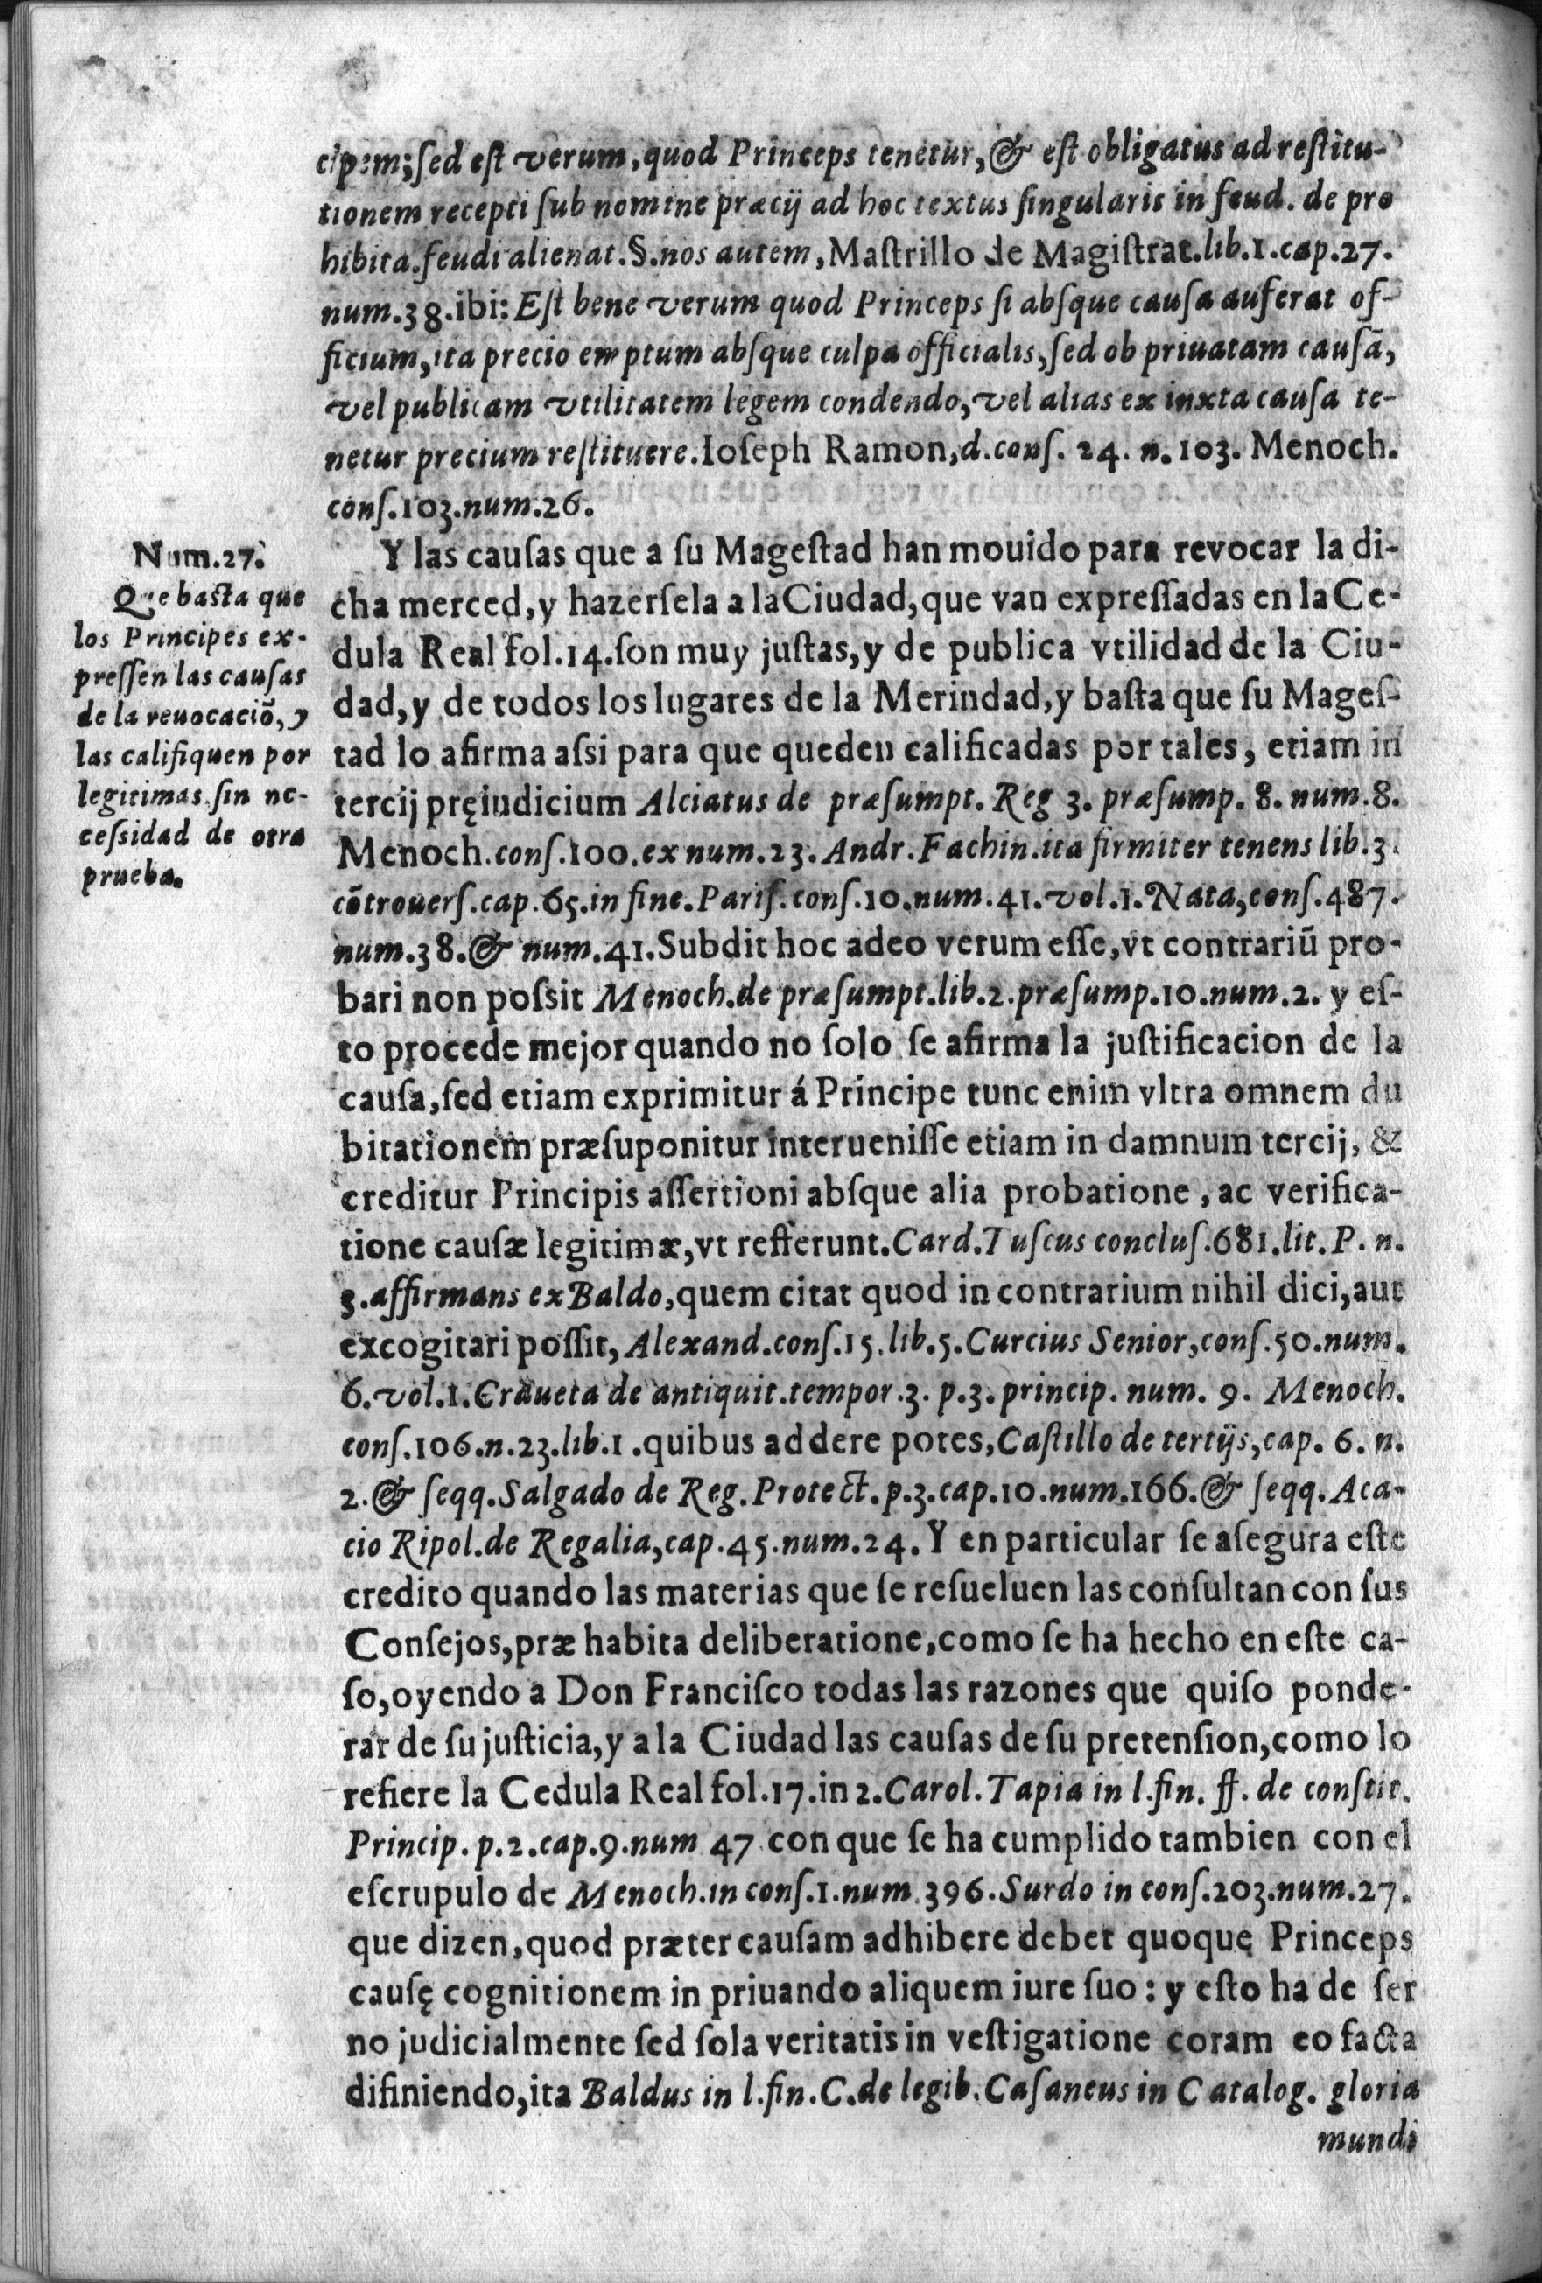 cipem; ſed eſt verum, quod Princeps tenetur, & eſt obligatus ad reſtitu-
tionem recepti ſub nomine præcij ad hoc textus ſingularis in feud. de pro
hibita. feudi alienat. §. nos autem, Maſtrillo de Magiſtrat. lib. 1. cap. 27.
num. 38. ibi: Eſt bene verum quod Princeps ſi abſque cauſa auferat of-
ficium, ita precio emptum abſque culpa officialis, ſed ob priuatam cauſã,
vel publicam vtilitatem legem condendo, vel alias ex inxta cauſa te-
netur precium reſtituere. Ioſeph Ramon, d. conſ. 24. n. 103. Menoch.
conſ. 103. num. 26.
Num. 27.
Que baſta que
los Principes ex-
preſſen las cauſas
de la reuocaciõ, y
las califiquen por
legitimas ſin ne-
ceſsidad de otra
prueba.
Y las cauſas que a ſu Mageſtad han mouido para revocar la di-
cha merced, y hazerſela a la Ciudad, que van expreſſadas en la Ce-
dula Real fol. 14. ſon muy juſtas, y de publica vtilidad de la Ciu-
dad, y de todos los lugares de la Merindad, y baſta que ſu Mageſ-
tad lo afirma aſsi para que queden calificadas por tales, etiam in
tercij pręiudicium Alciatus de præſumpt. Reg 3. præſump. 8. num. 8.
Menoch. conſ. 100. ex num. 23. Andr. Fachin. ita firmiter tenens lib. 3.
cõtrouerſ. cap. 65. in fine. Pariſ. conſ. 10. num. 41. vol. 1. Nata, conſ. 487.
num. 38. & num. 41. Subdit hoc adeo verum eſſe, vt contrariũ pro-
bari non poſsit Menoch. de præſumpt. lib. 2. præſump. 10. num. 2. y eſ-
to procede mejor quando no ſolo ſe afirma la juſtificacion de la
cauſa, ſed etiam exprimitur á Principe tunc enim vltra omnem du
bitationem præſuponitur interueniſſe etiam in damnum tercij, &
creditur Principis aſſertioni abſque alia probatione, ac verifica-
tione cauſæ legitimæ, vt refferunt. Card. Tuſcus concluſ. 681. lit. P. n.
3. affirmans ex Baldo, quem citat quod in contrarium nihil dici, aut
excogitari poſſit, Alexand. conſ. 15. lib. 5. Curcius Senior, conſ. 50. num.
6. vol. 1. Craueta de antiquit. tempor. 3. p. 3. princip. num. 9. Menoch.
conſ. 106. n. 23. lib. 1. quibus addere potes, Caſtillo de tertijs, cap. 6. n.
2. & ſeqq. Salgado de Reg. Protect. p. 3. cap. 10. num. 166. & ſeqq. Aca-
cio Ripol. de Regalia, cap. 45. num. 24. Y en particular ſe aſegura eſte
credito quando las materias que ſe reſueluen las conſultan con ſus
Conſejos, præ habita deliberatione, como ſe ha hecho en eſte ca-
ſo, oyendo a Don Franciſco todas las razones que quiſo ponde-
rar de ſu juſticia, y a la Ciudad las cauſas de ſu pretenſion, como lo
refiere la Cedula Real fol. 17. in 2. Carol. Tapia in l. fin. ff. de conſtit.
Princip. p. 2. cap. 9. num 47 con que ſe ha cumplido tambien con el
eſcrupulo de Menoch. in conſ. 1. num. 396. Surdo in conſ. 203. num. 27.
que dizen, quod præter cauſam adhibere debet quoquę Princeps
cauſę cognitionem in priuando aliquem iure ſuo: y eſto ha de ſer
no judicialmente ſed ſola veritatis in veſtigatione coram eo facta
difiniendo, ita Baldus in l. fin. C. de legib. Caſaneus in Catalog. gloria
mundi